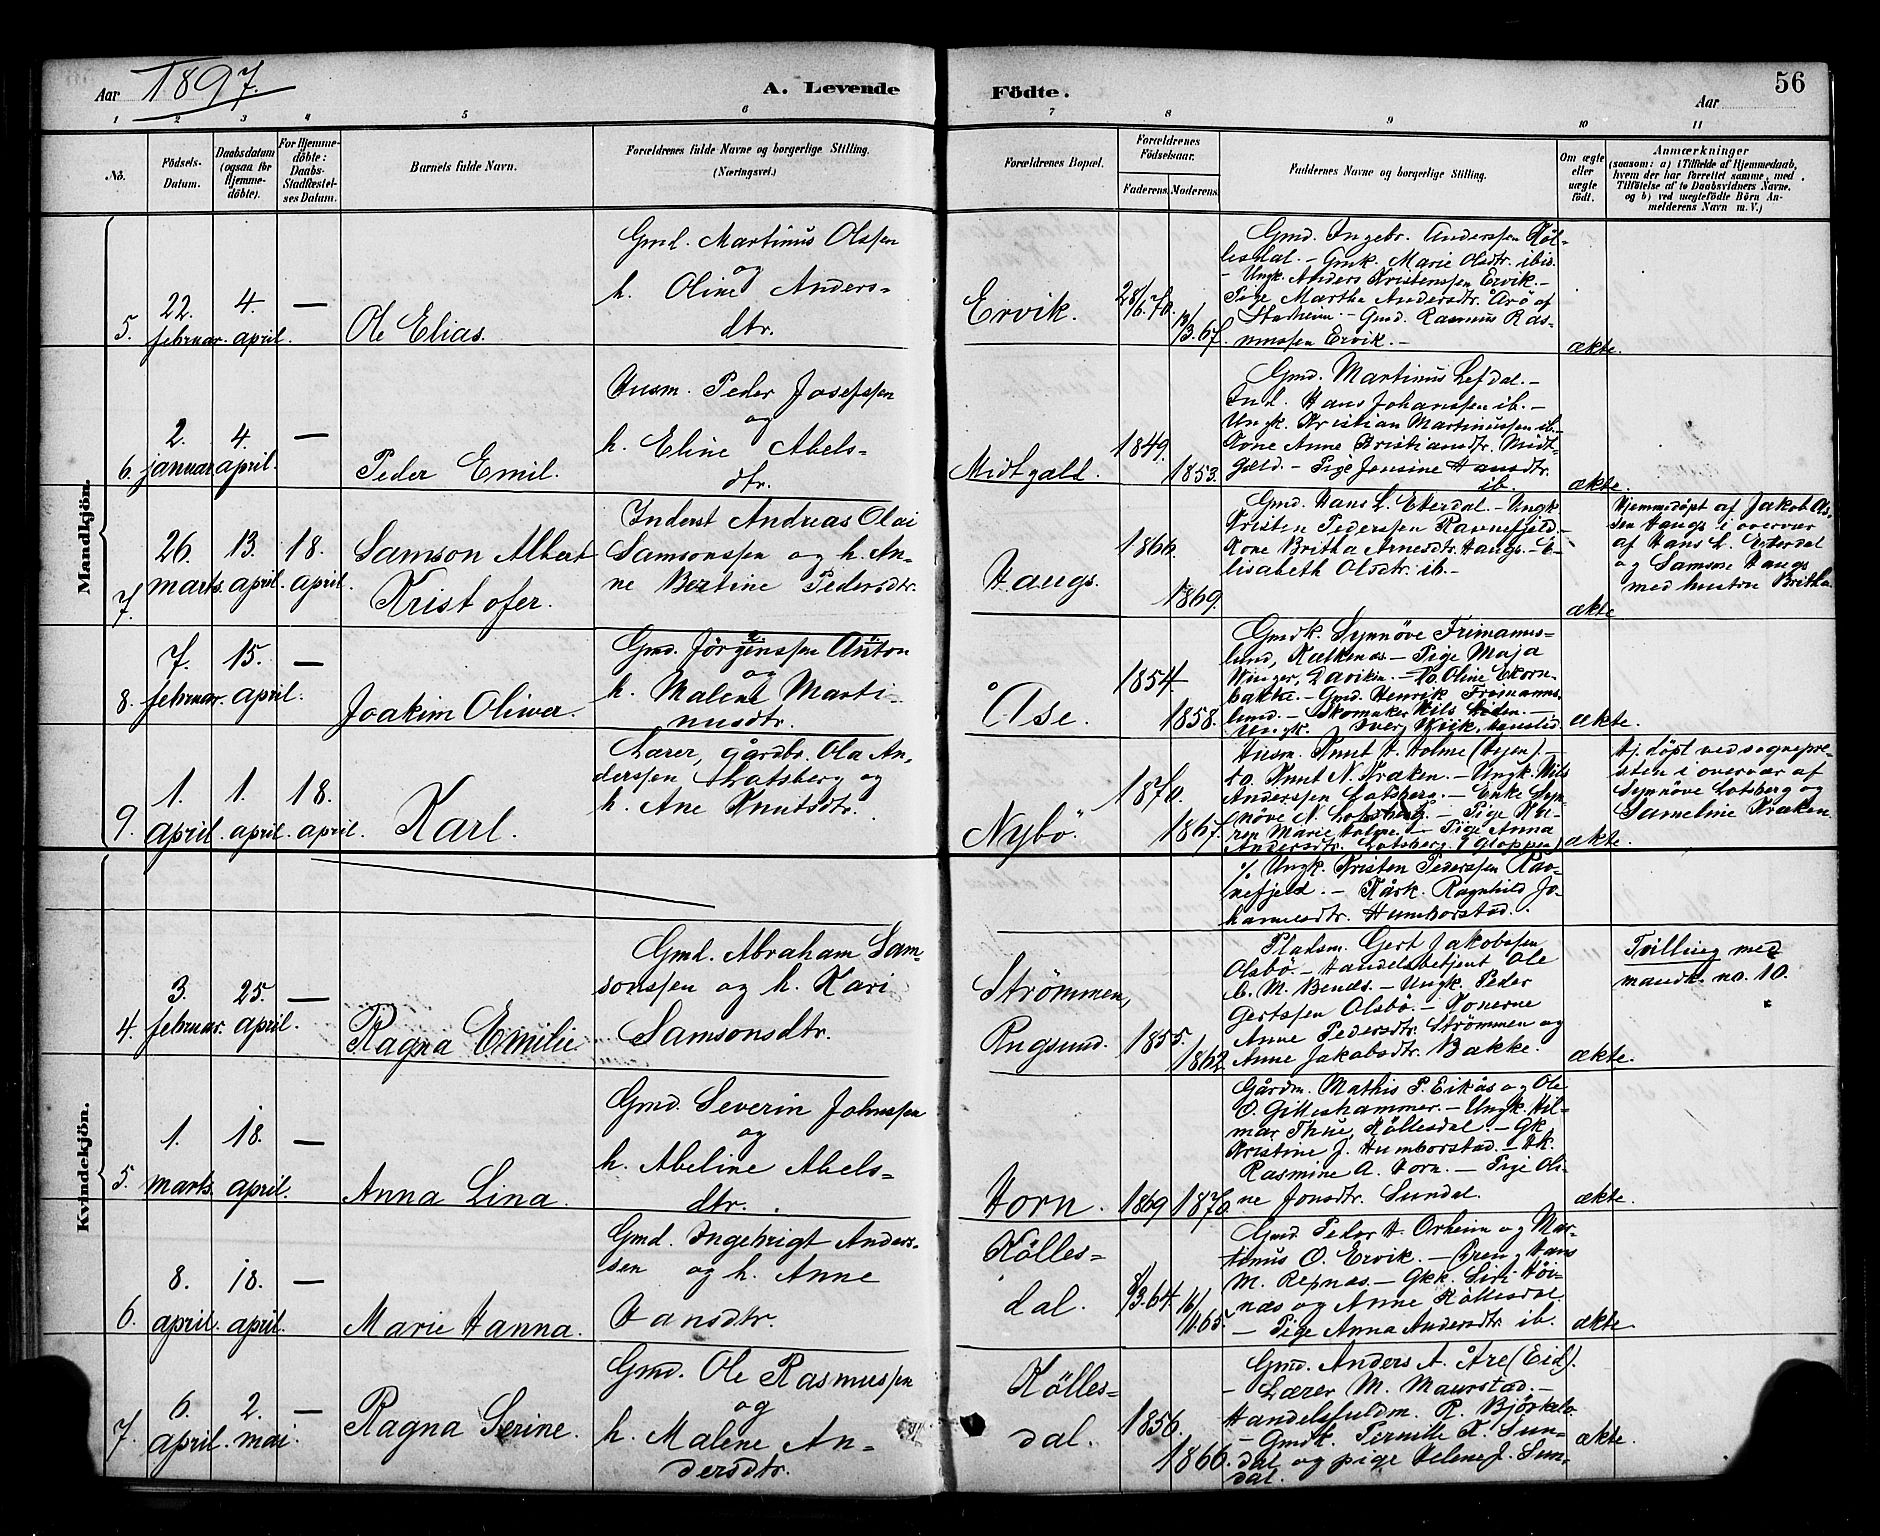 Aar 1897.
A. Levende
Födte.
Aar
56
1 2 3 4 5 6 7 8 9 10 11
No.
Födsels-
Datum.
Daabsdatum
(ogsaa for
Hjemme-
döbte).
For Hjemme-
döbte:
Daabs-
Stadfæstel-
ses Datum.
Barnets fulde Navn.
Forældrenes fulde Navne og borgerlige Stilling.
(Næringsvei.)
Forældrenes Bopæl.
Forældrenes
Födselsaar.
Faderens.
Moderens.
Faddernes Navne og borgerlige Stilling.
Om ægte
eller
uægte
födt.
Anmærkninger
(saasom: a) i Tilfælde af Hjemmedaab,
hvem der har forrettet samme, med
Tilföielse af to Daabsvidners Navne,
og b) ved uægtefödte Börn An-
melderens Navn m. V.)
Mandkjön.
5. 22. februar. 4. april. —
Ole Elias.
Gmd. Martinus Olssen
og
h. Oline Anders-
dtr.
Ervik.
28/6.70.
13/3.67.
Gmd. Ingebr. Anderssen Köl-
lesdal. - Gmk. Marie Olsdtr. ibid.
- Ungk. Anders Kristenssen Ervik. -
Pige Martha Andersdtr. Årö af
Stadheim. - Gmd. Rasmus Ras-
mussen Ervik. -
ækte.
6. 2. januar. 4. april. —
Peder Emil.
Husm. Peder Josefssen
og
h. Eline Abels-
dtr.
Midtgald.
1849.
1853.
Gmd. Martinus Lefdal. -
Ind. Hans Johanssen ib. -
Ungk. Kristian Martinussen ib. -
Kone Anne Kristiansdtr. Midt-
gald. - Pige Jensine Hansdtr.
ib.
ækte.
7. 26. marts. 13. april. 18. april.
Samson Albert
Kristofer.
Inderst Andreas Olai
Samsonssen og h. An-
ne Bertine Pedersdtr.
Haugs.
1866.
1869.
Gmd. Hans L. Ekerdal. - Ungk.
Kristen Pederssen Ravnefjeld. -
Kone Britha Arnesdtr. Haugs. - E-
lisabeth Olsdtr. ib. -
ækte.
Hjemmedöpt af Jakob As-
sen Haugs i overvær
af Hans L. Ekerdal
og Samson Haugs
med hustru Britha.
8. 7. februar. 15. april. —
Joakim Oliver.
Gmd. Jörgenssen Anton
og
h. Malene Marti-
nusdtr.
Åse.
1854.
1858.
Gmdk. Synnöve Frimanns-
lund, Kalkenæs. - Pige Maja
Winger, Daviken. - Do. Oline Ekorn-
bakke. - Gmd. Henrik Frimanns-
lund. - Skomaker Nils Liden. -
Ungk. Iver
ækte.
9. 1. april. 1. april. 18. april.
Karl.
Lærer, gårdbr. Ola An-
derssen Lotsberg og
h. Ane Knutsdtr.
Nybö.
1870.
1867.
Husm. Knut H. Holme (Hejen). -
to. Knut N. Kraken. - Ungk. Nils
Anderssen Lotsberg. - Enke Syn-
növe N. Lotsberg. - Pige Ka-
ren Marie Holme. - Pige Anna
Andersdtr. Lotsberg. (Gloppen)
ækte.
Hj. döpt ved sognepre-
sten i overvær af
Synnöve Lotsberg og
Sameline Kraken.
% Ungk. Kristen Pederssen Rav-
nefjeld. - Kårk. Ragnhild Jo-
hannesdtr. Humborstad.
Kvindekjön.
4. 3. februar. 25. april. —
Ragna Emilie
Gmd. Abraham Sam-
sonssen og h. Kari
Samsonsdtr.
Strömmen,
Rugsund.
1855.
1862
Pladsm. Gert Jakobssen
Olsbö. - Handelsbetjent Ole
C. M. Benæs. - Ungk. Peder
Gertssen Olsbö. - Konerne
Anne Pedersdtr. Strömmen og
Anne Jakobsdtr. Bakke.
ækte.
Tvilling med
mandk. no. 10.
5. 1. marts. 18. april. —
Anna Lina.
Gmd. Severin Johnssen
og
h. Abeline Abels-
dtr.
Horn.
1869
1870.
Gårdm. Mathis P. Eikås og Ole
O. Gilleshammer. - Ungk. Hil-
mar Thue, Köllesdal. - Gk.
Kristine J. Humborstad. - Hk.
Rasmine A. Horn. - Pige Oli-
ne Jonsdtr. Sundal.
ækte.
6. 8. april. 18. april. —
Marie Hanna.
Gmd. Ingebrigt Anders-
sen og h. Anne
Hansdtr.
Kölles-
dal.
8/3.64
16/11.65.
Gmd. Peder H. Orheim og Mar-
tinus O. Ervik. - Dreng Hans
M. Repnæs. - Gkk. Siri Höi-
næs og Anne Köllesdal.
- Pige Anna Andersdtr. ib.
ækte.
7. 6. april. 2. mai. —
Ragna Serine.
Gmd. Ole Rasmussen
og
h. Malene An-
dersdtr.
Kölles-
dal.
1856.
1866.
Gmd. Anders A. Åre (Eid).
- Lærer M. Maurstad. -
Handelsfuldm. R. Björkelo.
- Gmdk. Pernille K. Sun-
dal og pige Helene J. Sun-
dal.
ækte.